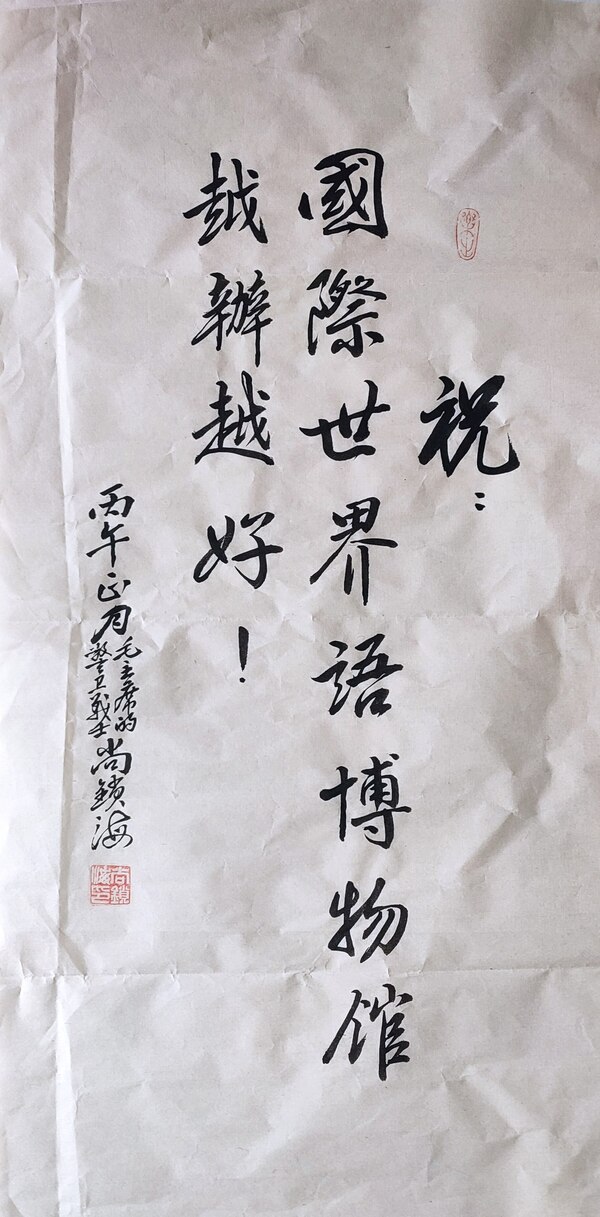 祝：
國際世界語博物馆
越辦越好！
丙午正月毛主席的警卫戰士尚鎖海
尚鎖海印